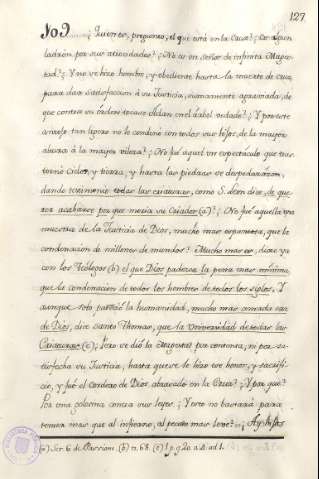 127
No? ¿Quien es, pregunto, el que está en la Cruz? ¿Es algun
ladrón por sus atrocidades? ¿No es un Señor de infinita Mages-
tad? ¿Y no se hizo hombre, y obediente hasta la muerte de Cruz,
para dar satisfaccion á su Justicia, sumamente agraviada, de
que comiera un bocado Adan en el arbol vedado? ¿Y por este
tan no le condenó con todos sus hijos, de la mayor
altura á la mayor vileza? ¿No fué aquel un espectáculo que tras-
tornó Cielos, y tierra, y hasta las piedras se despedazáron,
dando testimonio todas las criaturas, como S. Leon dice, de que-
rer acabarse por que moría su Criador (a)? ¿No fué aquella una
de la Justicia de Dios, mucho mas espantosa, que la
condenacion de millones de mundos? Mucho mas es, dixe ya
con los Teólogos (b) el que Dios padezca la pena mas mínima,
que la condenacion de todos los hombres de todos los siglos. Y
aunque solo padeció la humanidad, mucho mas
de Dios, dice Santo Thomas, que la Universidad de todas las
Criaturas (c); Pero se dió la Magestad por contenta, ni por sa-
tisfecha su Justicia, hasta que se le hizo ese honor, y sacrifi-
cio, y fué el Cordero de Dios abrasado en la Cruz? ¿Y por qué?
Por una golosina contra sus leyes. ¿Y esto no bastará para
temer mas que al infierno, al pecado mas leve?
(a) Ser. 6 de Passion. (b) n. 68. (c) 1. p. q. 20. a. 4. ad. 1.